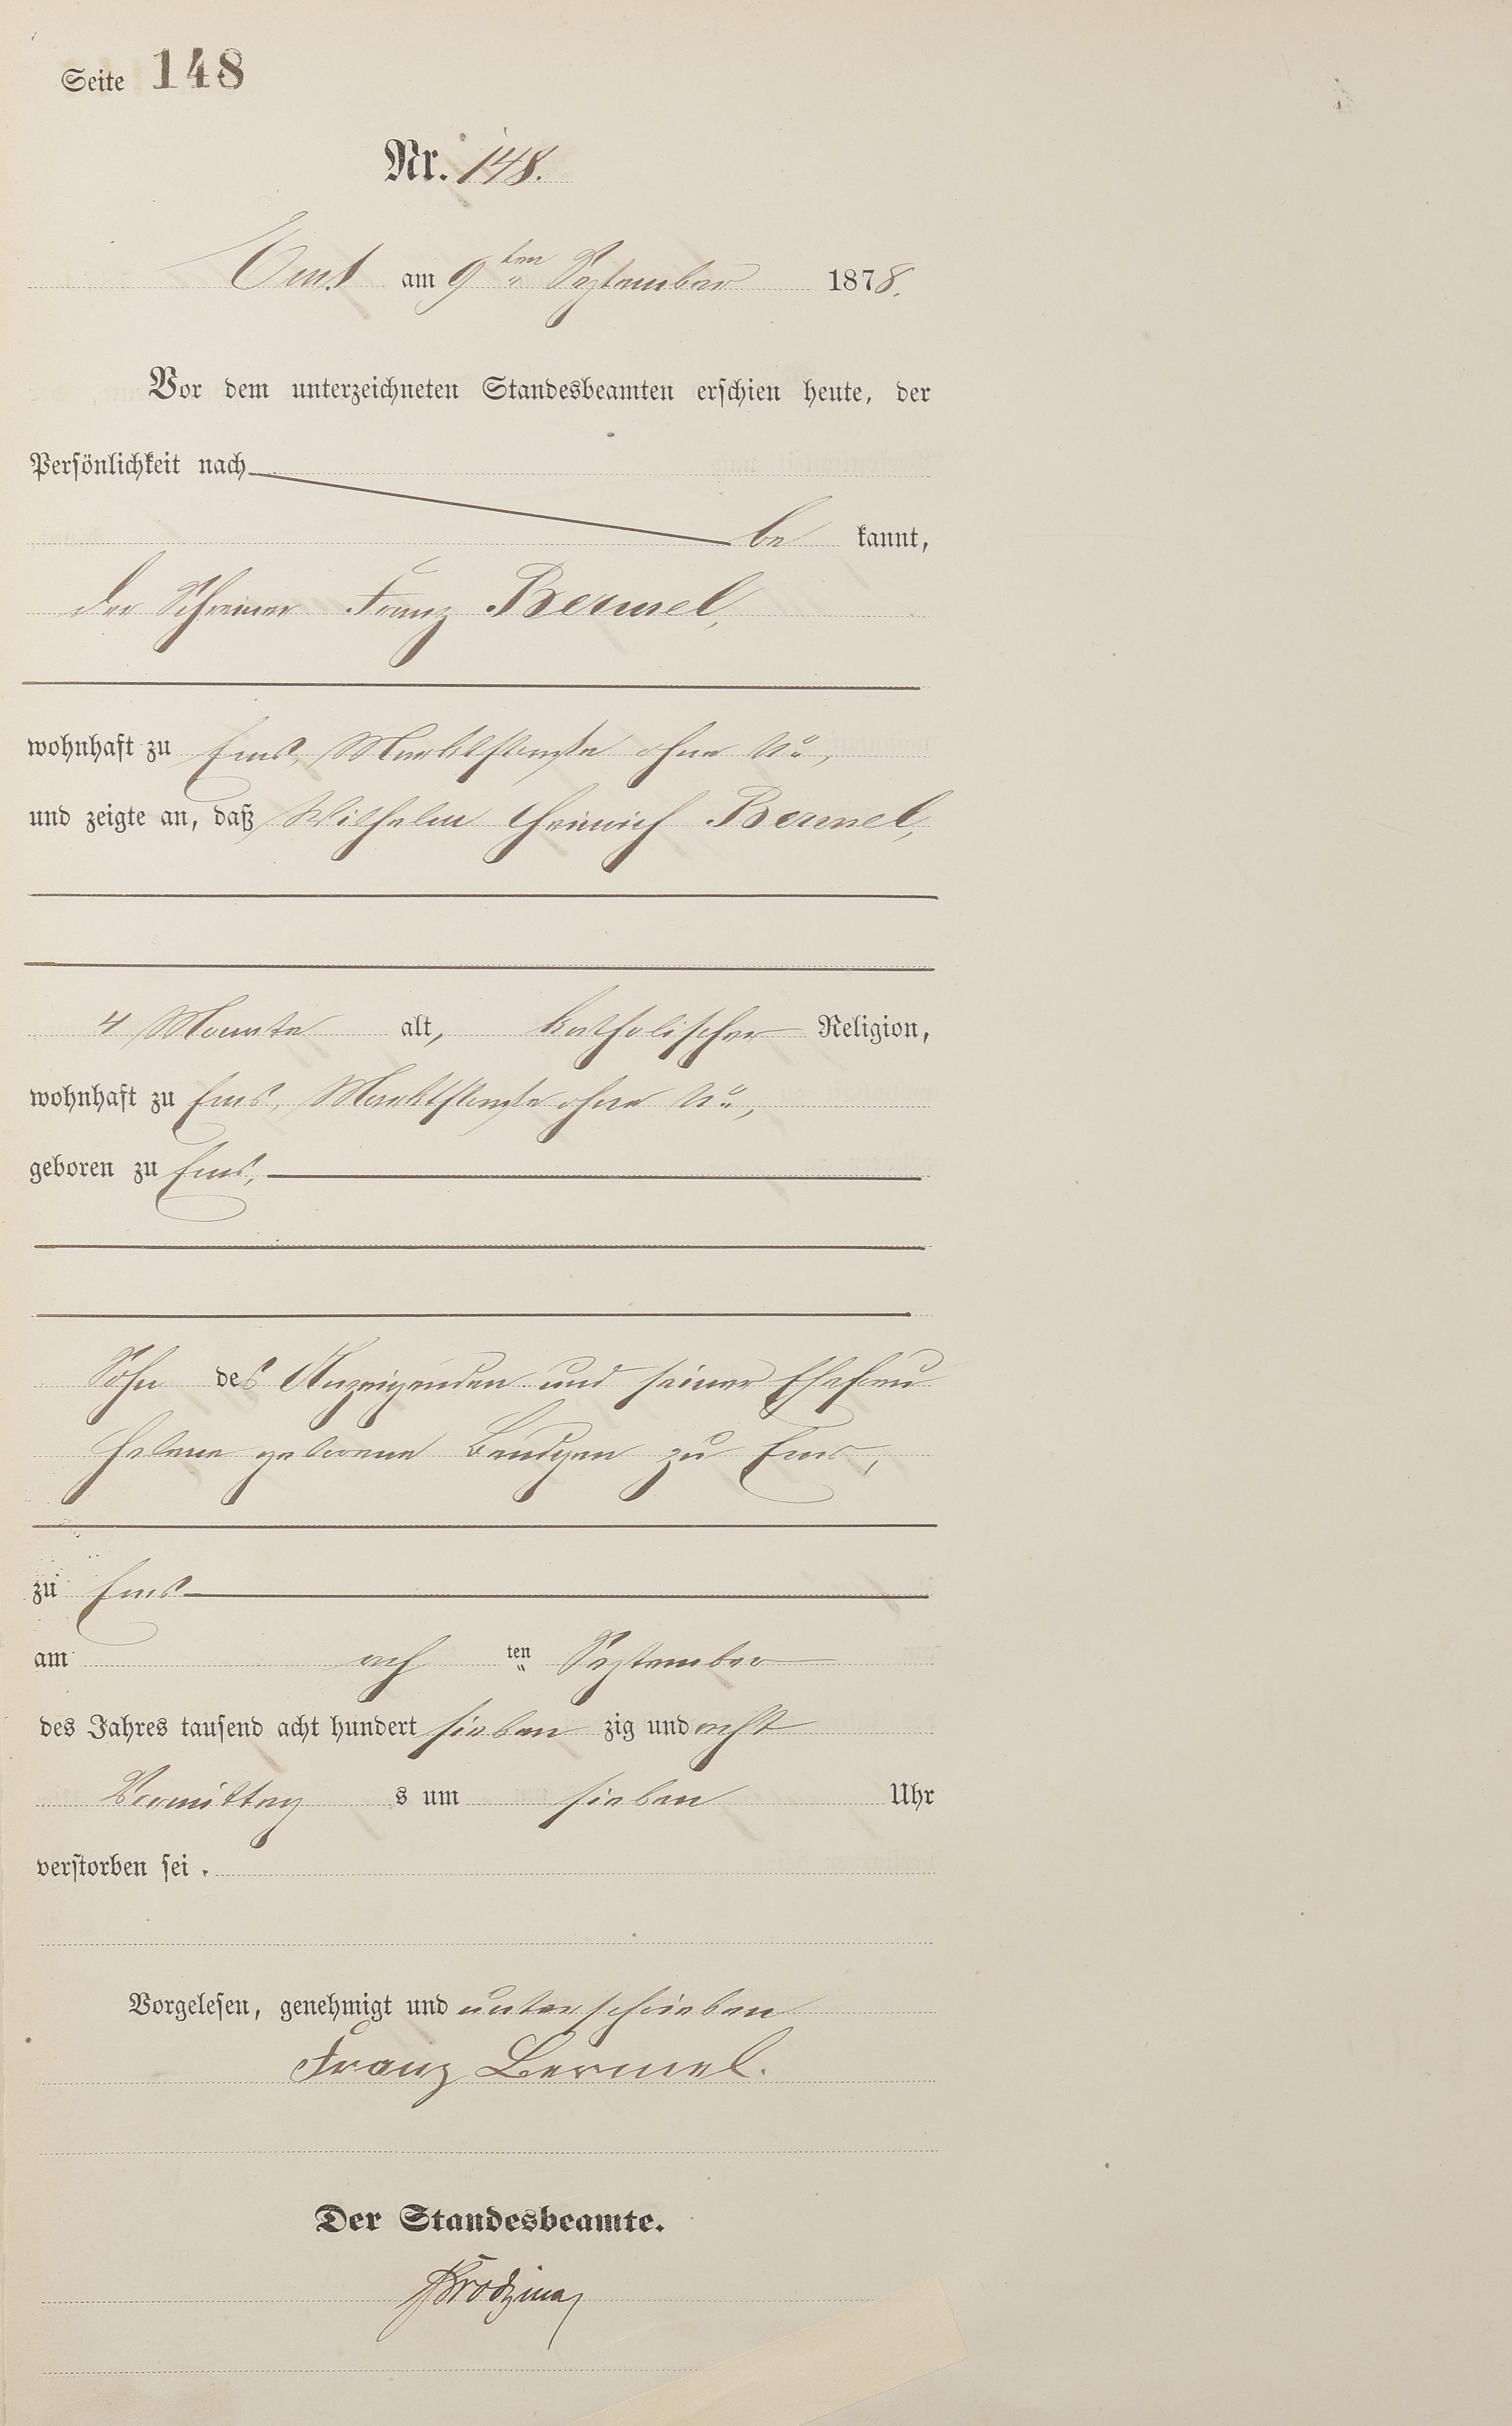 Seite 148
Nr. 148.
Ems am 9ten September 1878.
Vor dem unterzeichneten Standesbeamten erschien heute, der
Persönlichkeit nach
be kannt,
der Schreiner Franz Bermel,
wohnhaft zu Ems, Marktstraße ohne No,
und zeigte an, daß Wilhelm Heinrich Bermel,
4 Monate alt, katholischer Religion,
wohnhaft zu Ems, Marktstraße ohne No,
geboren zu Ems,
Sohn des Anzeigenden und seiner Ehefrau
Helene geborene zu Ems,
zu Ems
am ach ten September
des Jahres tausend acht hundert sieben zig und acht
Vormittag s um sieben Uhr
verstorben sei.
Vorgelesen, genehmigt und unterschrieben
Franz Bermel.
Der Standesbeamte.